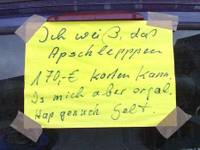 Ich weiß, das
Apschlepppen
170,-€ kosten kann.
Is mich aber orgal.
Hap genuch Gelt.